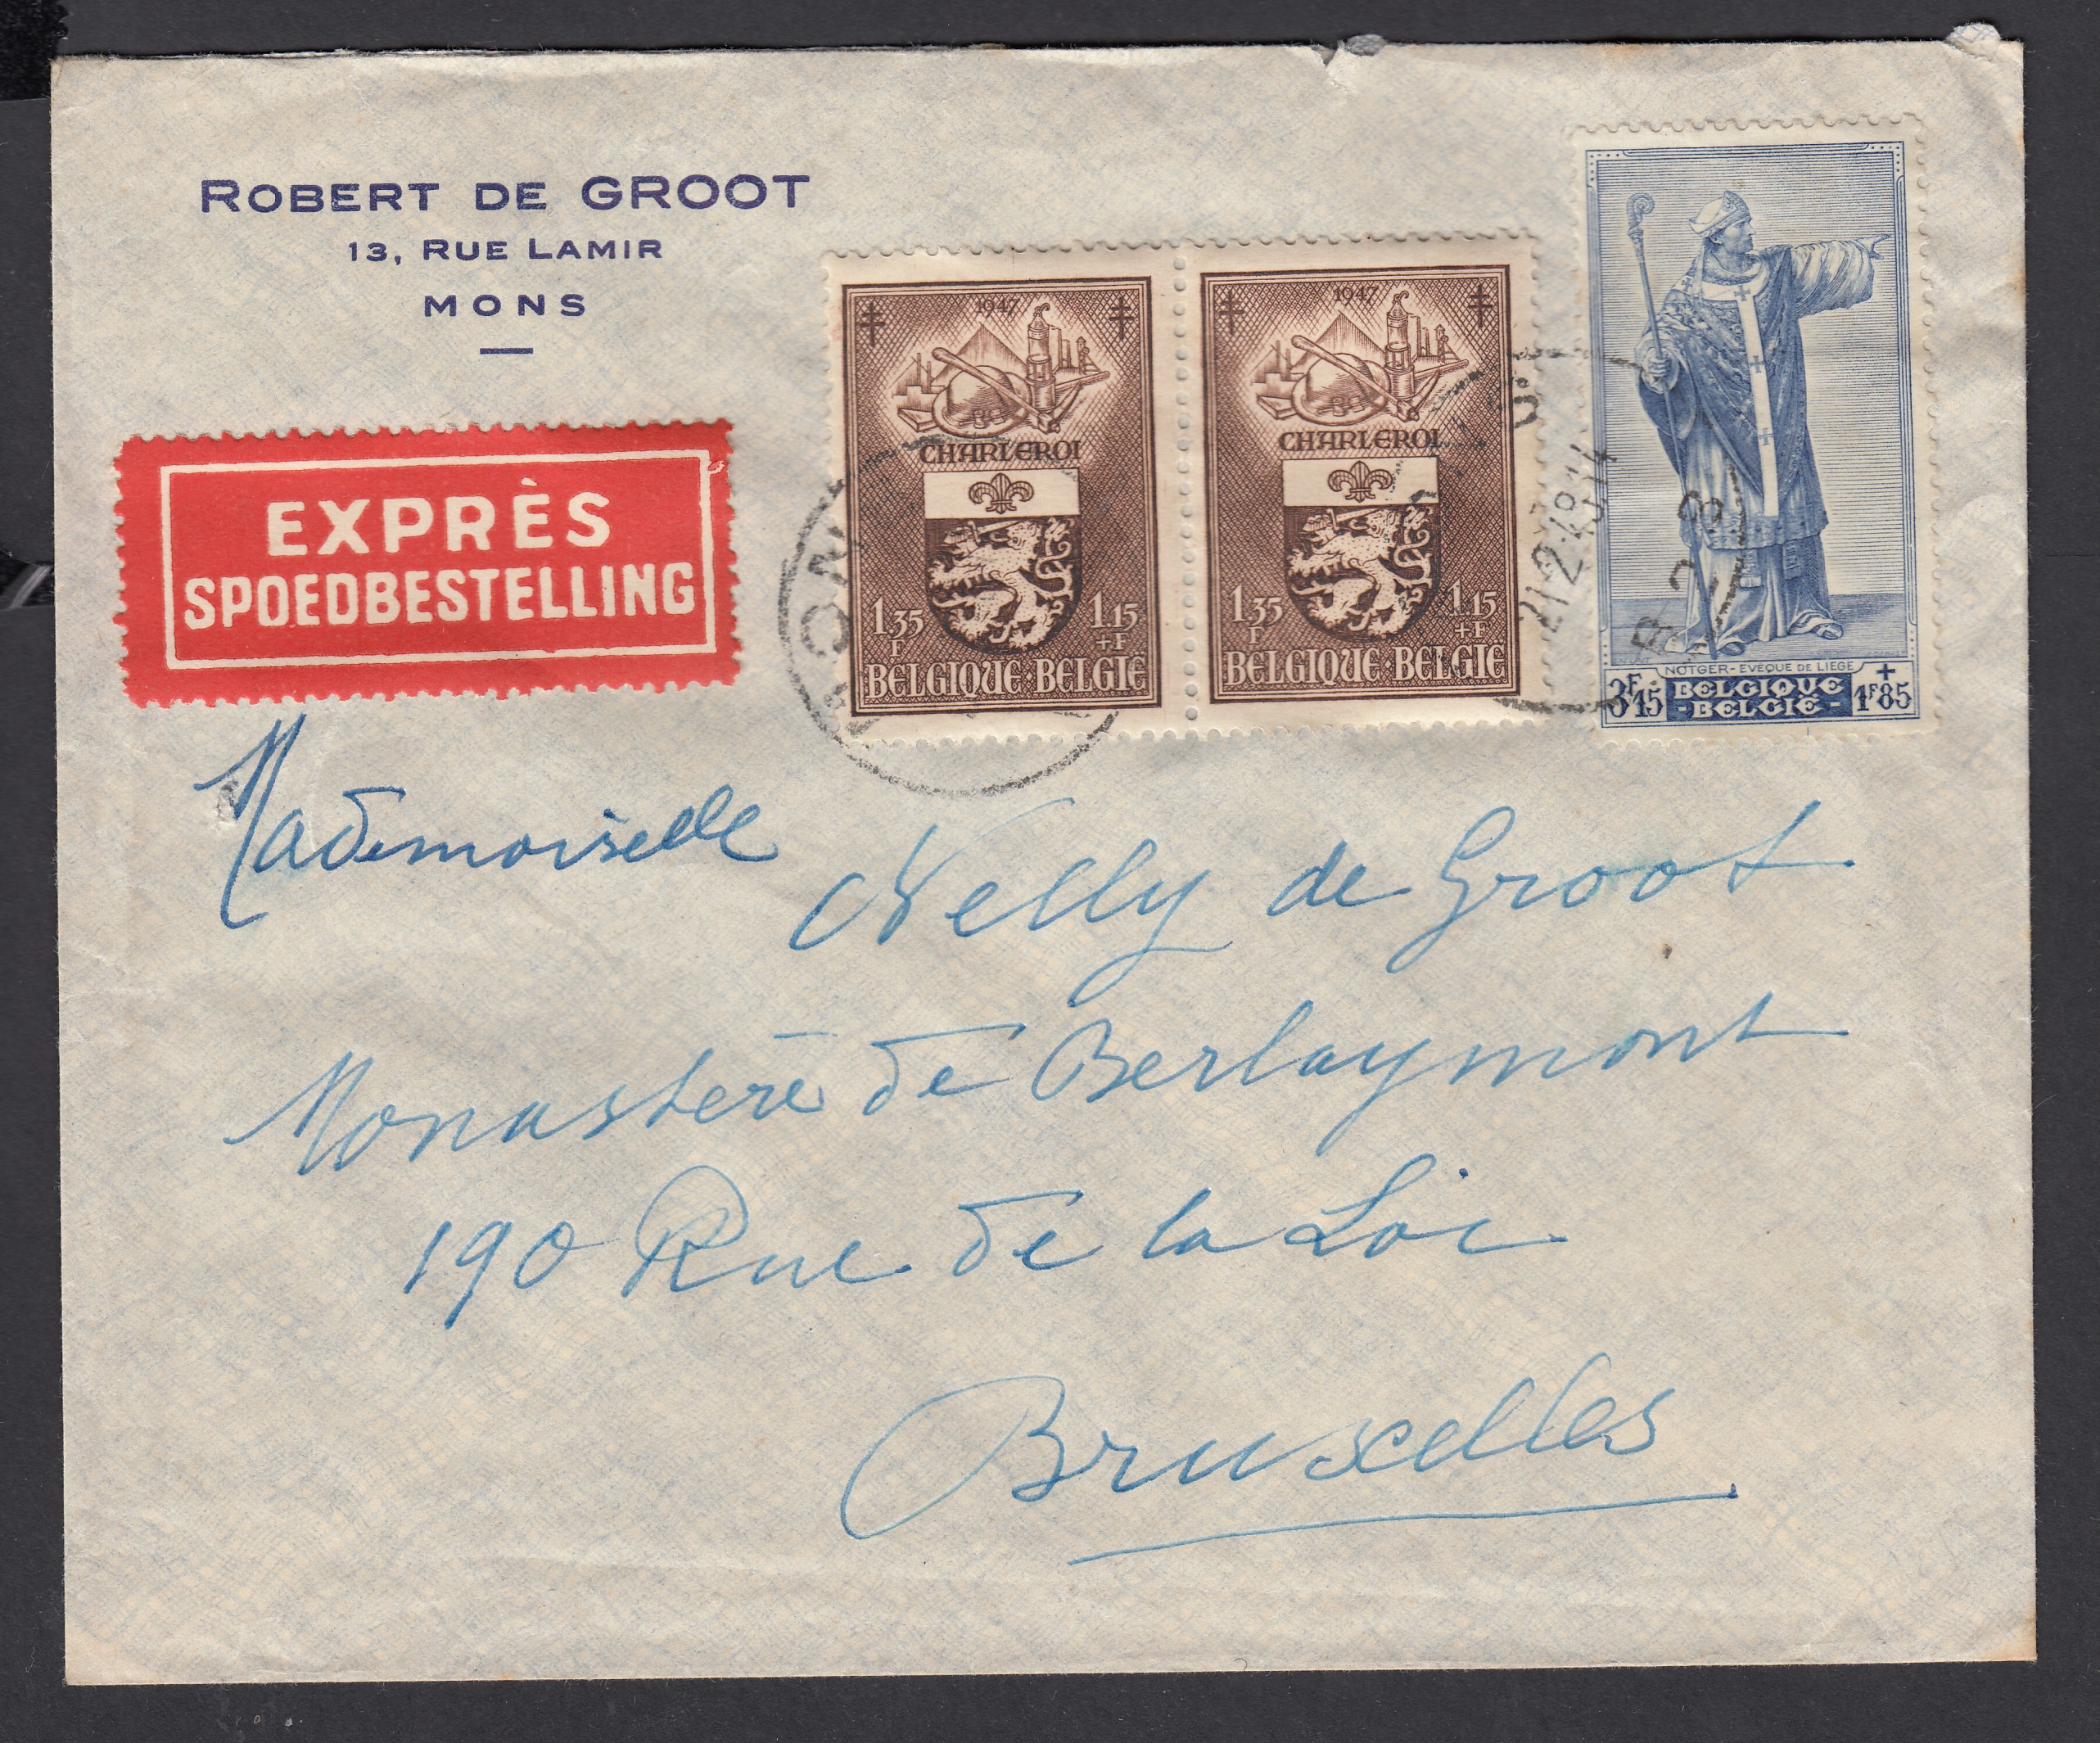 ROBERT DE GROOT
13, RUE LAMIR
MONS
EXPRÈS
SPOEDBESTELLING
1947
CHARLEROI
1F35 1.15+F
BELGIQUE·BELGIE
1947
CHARLEROI
1F35 1.15+F
BELGIQUE·BELGIE
NOTGER-EVEQUE DE LIEGE
3F15 BELGIQUE + 1F85
-BELGIË-
MONS
21 2.48 14
B 2 B
Mademoiselle Nelly de Groot
Monastère de Berlaymont
190 Rue de la Loi
Bruxelles